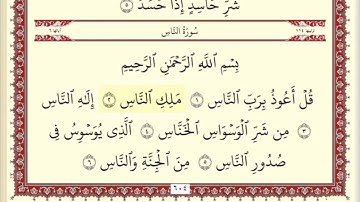 شَرِّ حَاسِدٍ إِذَا حَسَدَ ٥
ترتيبها ١١٤ سُورَةُ النَّاسِ آياتها ٦
بِسْمِ اللَّهِ الرَّحْمَٰنِ الرَّحِيمِ
قُلْ أَعُوذُ بِرَبِّ النَّاسِ ١ مَلِكِ النَّاسِ ٢ إِلَٰهِ النَّاسِ
٣ مِن شَرِّ الْوَسْوَاسِ الْخَنَّاسِ ٤ الَّذِى يُوَسْوِسُ فِى
صُدُورِ النَّاسِ ٥ مِنَ الْجِنَّةِ وَالنَّاسِ ٦
٦٠٤